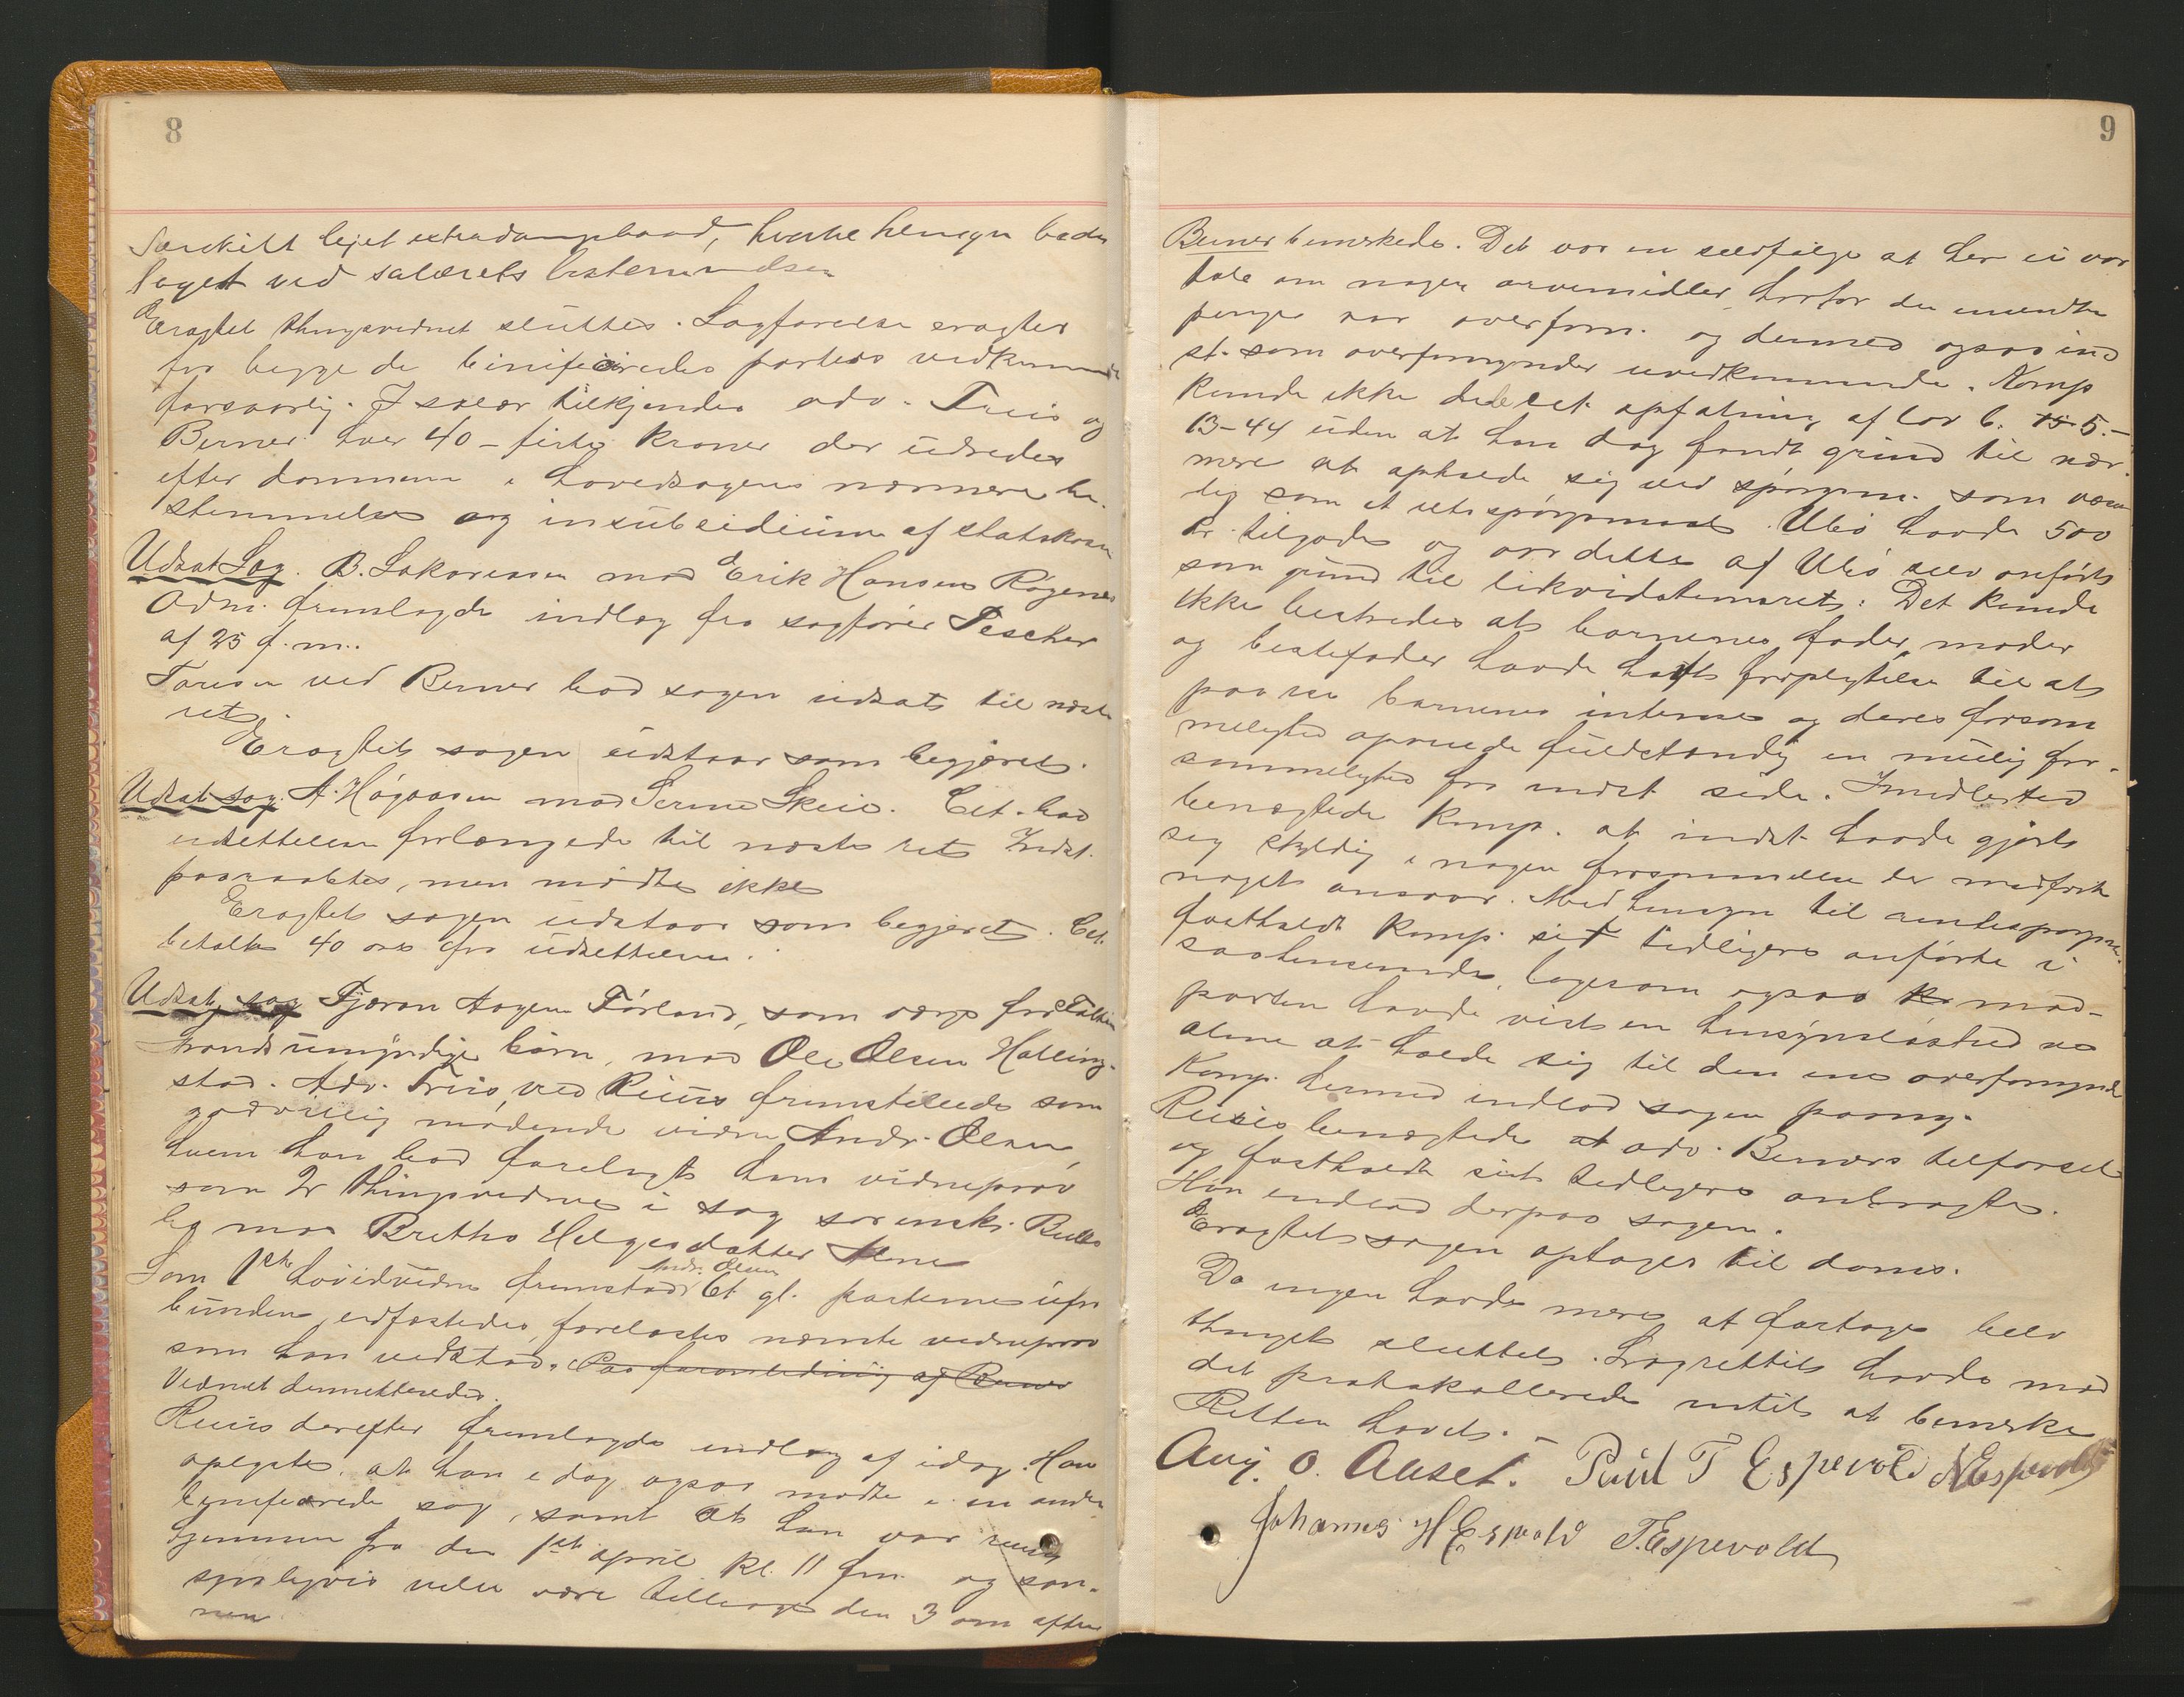 8
Særskilt lejet extradampbaad, hvortil hensyn bedes
taget ved salærets bestemmelse
Eragtet thingsvidnet sluttes. Sagførelse eragtes
for begge de benificerede parters vedkommende
forsvarlig. I salær tilkjendes adv. Friis og
Berner hver 40 - firti kroner der udredes
efter dommen i hovedsagens nærmere be-
stemmelse og in subsidium af statskassen
Udsat Sag. B. Sakariassen mod Erik Hansen Røgenes
Adm. fremlagde indlæg fra sagfører Tescher
af 25 f.m.
Taresen ved Berner bad sagen udsat til næste
ret.
Eragtet sagen udstaar som begjæret.
Udsat sag. A. Høgaasen mod Serine Skeie. Cit. bad
udsettelsen forlænget til næste ret. Indst.
paaraabtes, men mødte ikke
Eragtet sagen udstaar som begjæret. Cit.
betalte 40 øre for udsettelsen.
Udsat sag Tjøran Aagesen Førland, som værge for
umyndige børn, mod Ole Olsen Halling-
stad. Adv. Friis ved Ruus fremstillede som
godvillig mødende vidne Andr. Olsen,
hvem han bad forelagt hans vidneprov
som 2r thingsvidne i sag sorenskr. Bulls
bo mod Bretha Helgesdatter
Som 1ste hovidvidne fremstod Andr. Olsen 61 gl. parterne ufor
bunden, edfæstedes, forelæstes nævnte vidneprov
som han vedstod. Paa foranledning af Berner
Vidnet demitteredes.
Ruus derefter fremlagde indlæg af idag. Han
oplyste, at han idag ogsaa mødte i en anden
benificeret sag, samt at han var reist
hjemmen fra den 1ste april kl. 11 fm. og san-
synligvis vilde være tilbage den 3 om aften
nen
9
Berner bemerkede. Det var en selvfølge at her ei var
tale om nogen arvemidler, hvorfor de nævnte
penge var overform. og dermed ogsaa ind
st. som overformynder uvedkommende. Komp
kunde ikke dele cit. opfatning af lov 6. 5.-
13-44 uden at han dog fandt grund til nær-
mere at opholde sig ved spørgsm. som væsent
lig som et retsspørgsmaal. Ubø havde 500
kr. tilgode og var dette af Ubø selv anført
som grund til likvidationsret. Det kunde
ikke bestredes at barnenes fader, moder
og bestefader havde havt forpligtelse til at
paase barnenes interesse og deres forsøm
melighed opveiede fuldstændig en mulig for-
sømmelighed fra indst. side. Imidlertid
benægtede komp. at indst. havde gjort
sig skyldig i nogen forsømmelse der medførte
noget ansvar. Med hensyn til amtespørgsm.
fastholdt komp. sit tidligere anførte i
saahenseende, ligesom ogsaa mod-
parten havde vist en hensynsløshed ved
alene at holde sig til den ene overformynder
Komp. hermed indlod sagen paany.
Ruus benægtede adv. Berners tilførsel
og fastholdt sit tidligere anbragte.
Han indlod derpaa sagen.
Eragtet sagen optages til doms.
Da ingen havde mere at foretage blev
thinget sluttet. Lagrettet havde mod
det protokollerede intet at bemerke
Retten hævet. -
Aug. O. Auset. Paul T Espevold N Espevold
Johannes H Espevold T. Espevold